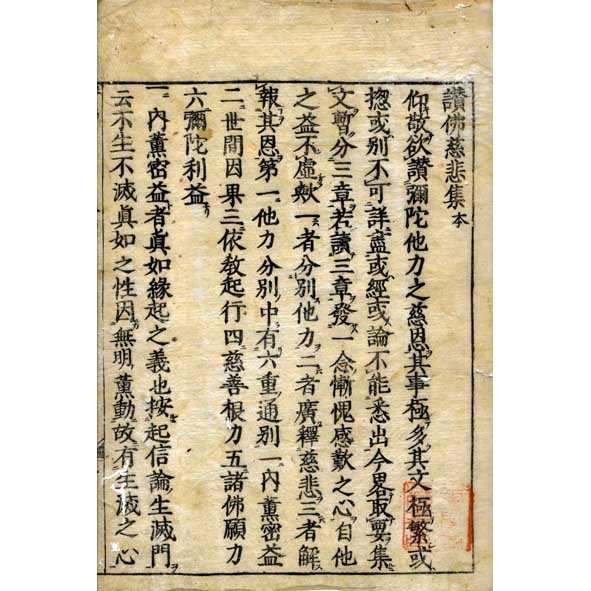 讚佛慈悲集本
仰敬欲讚彌陀他力之慈恩其事極多其文極繁或
捴或別不可詳盡或經或論不能悉出今畧取要集
文暫分三章若讀三章發一念慚愧感歎之心自他
之益不虛歟一者分別他力二者廣釋慈悲三者解
報其恩第一他力分別中有六重通別一內薰密益
二世間因果三依敎起行四慈善根力五諸佛願力
六彌陀利益
一內薰密益者眞如緣起之義也按起信論生滅門
云不生不滅眞如之性因無明薰動故有生滅之心